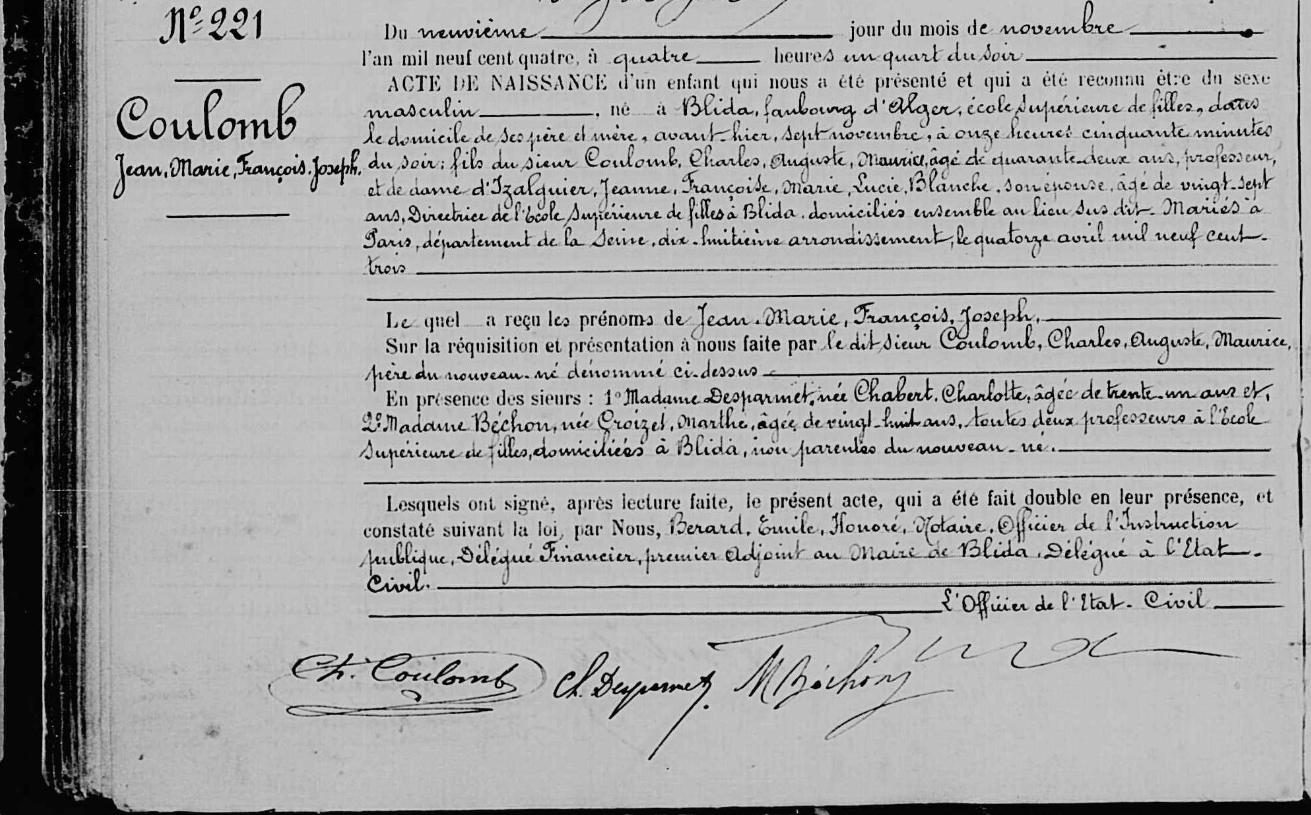 Nº 221
Coulomb
Jean, Marie, François, Joseph.
Du neuvième jour du mois de novembre
l'an mil neuf cent quatre, à quatre heures un quart du soir
ACTE DE NAISSANCE d'un enfant qui nous a été présenté et qui a été reconnu être du sexe
masculin, né à Blida, faubourg d'Alger, école supérieure de filles, dans
le domicile de ses père et mère, avant-hier, sept novembre, à onze heures cinquante minutes
du soir; fils du sieur Coulomb, Charles, Auguste, Maurice, âgé de quarante-deux ans, professeur,
et de dame d'Izalguier, Jeanne, Françoise, Marie, Lucie, Blanche, son épouse, âgé de vingt-sept
ans, Directrice de l'École Supérieure de filles à Blida, domiciliés ensemble au lieu sus dit. Mariés à
Paris, département de la Seine, dix-huitième arrondissement, le quatorze avril mil neuf cent-
trois
Le quel a reçu les prénoms de Jean, Marie, François, Joseph.
Sur la réquisition et présentation à nous faite par le dit sieur Coulomb, Charles, Auguste, Maurice,
père du nouveau-né dénommé ci-dessus
En présence des sieurs : 1º Madame Desparmet, née Chabert, Charlotte, âgée de trente-un ans et,
2º Madame Béchon, née Croizet, Marthe, âgée de vingt-huit ans, toutes deux professeurs à l'École
Supérieure de filles, domiciliées à Blida, non parentes du nouveau-né.
Lesquels ont signé, après lecture faite, le présent acte, qui a été fait double en leur présence, et
constaté suivant la loi, par Nous, Berard, Emile, Honoré, Notaire, Officier de l'Instruction
publique, Délégué Financier, premier Adjoint au Maire de Blida, Délégué à l'Etat-
Civil.
L'Officier de l'Etat-Civil
Ch. Coulomb Ch. Desparmet M Béchon